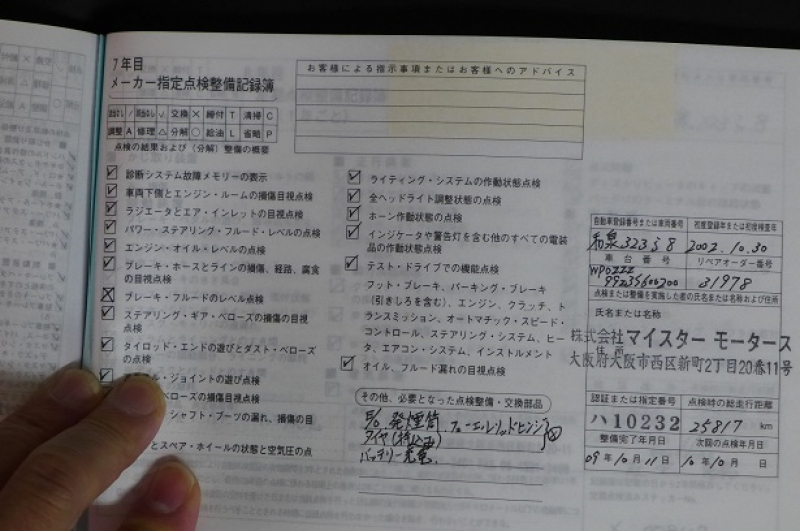 7年目
メーカー指定点検整備記録簿
お客様による指示事項またはお客様へのアドバイス
交換 × 締付 T 清掃 C
調整 A 修理 △ 分解 ○ 給油 L 省略 P
点検の結果および(分解)整備の概要
診断システム故障メモリーの表示
車両下側とエンジン・ルームの損傷目視点検
ラジエータとエア・インレットの目視点検
パワー・ステアリング・フルード・レベルの点検
エンジン・オイル・レベルの点検
ブレーキ・ホースとラインの損傷、経路、腐食
の目視点検
ブレーキ・フルードのレベル点検
ステアリング・ギア・ベローズの損傷の目視
点検
タイロッド・エンドの遊びとダスト・ベローズ
の点検
ル・ジョイントの遊び点検
ベローズの損傷目視点検
シャフト・ブーツの漏れ、損傷の目
とスペア・ホイールの状態と空気圧の点
ライティング・システムの作動状態点検
全ヘッドライト調整状態の点検
ホーン作動状態の点検
インジケータや警告灯を含む他のすべての電装
品の作動状態点検
テスト・ドライブでの機能点検
フット・ブレーキ、パーキング・ブレーキ
(引きしろを含む)、エンジン、クラッチ、ト
ランスミッション、オートマチック・スピード・
コントロール、ステアリング・システム、ヒー
タ、エアコン・システム、インストルメント
オイル、フルード漏れの目視点検
その他、必要となった点検整備・交換部品
E/O 発煙筒
タイヤ(持込み)
バッテリー充電
自動車登録番号または車両番号 初度登録年または初度検査年
和泉 323 ら 8 2002.10.30
車台番号 リペアオーダー番号
WP0ZZZ
99Z3S600200 31978
点検または整備を実施した者の氏名または名称および住所
氏名または名称
株式会社マイスター モータース
住所
大阪府大阪市西区新町2丁目20番11号
認証または指定番号 点検時の総走行距離
ハ10232 25817 km
整備完了年月日 次回の点検年月日
09年10月11日 10年10月 日